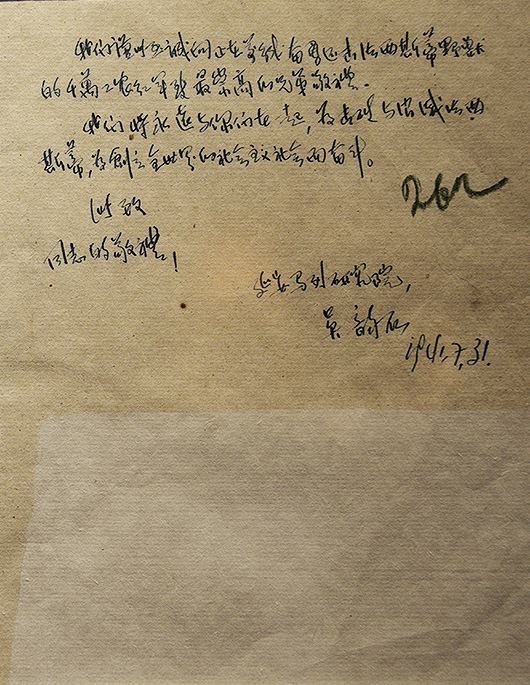 我们谨以至诚向正在前线奋勇还击法西斯蒂野兽
的千万工农红军致最崇高的兄弟敬礼。
我们将永远与你们在一起，为击碎与消灭法西
斯蒂，为创立全世界的社会主义社会而奋斗。
此致
同志的敬礼！
262
延安马列研究院，
吴
1941.7.31.